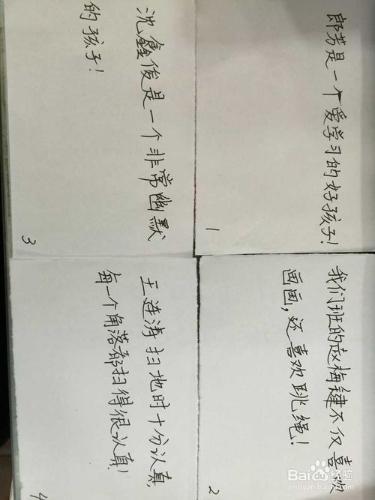 郎芳是一个爱学习的好孩子!
1
我们班的赵梅婕不仅喜欢
画画,还喜欢跳绳!
2
沈鑫俊是一个非常幽默
的孩子!
3
王连涛扫地时十分认真
每一个角落都扫得很认真!
4
Baidu经验